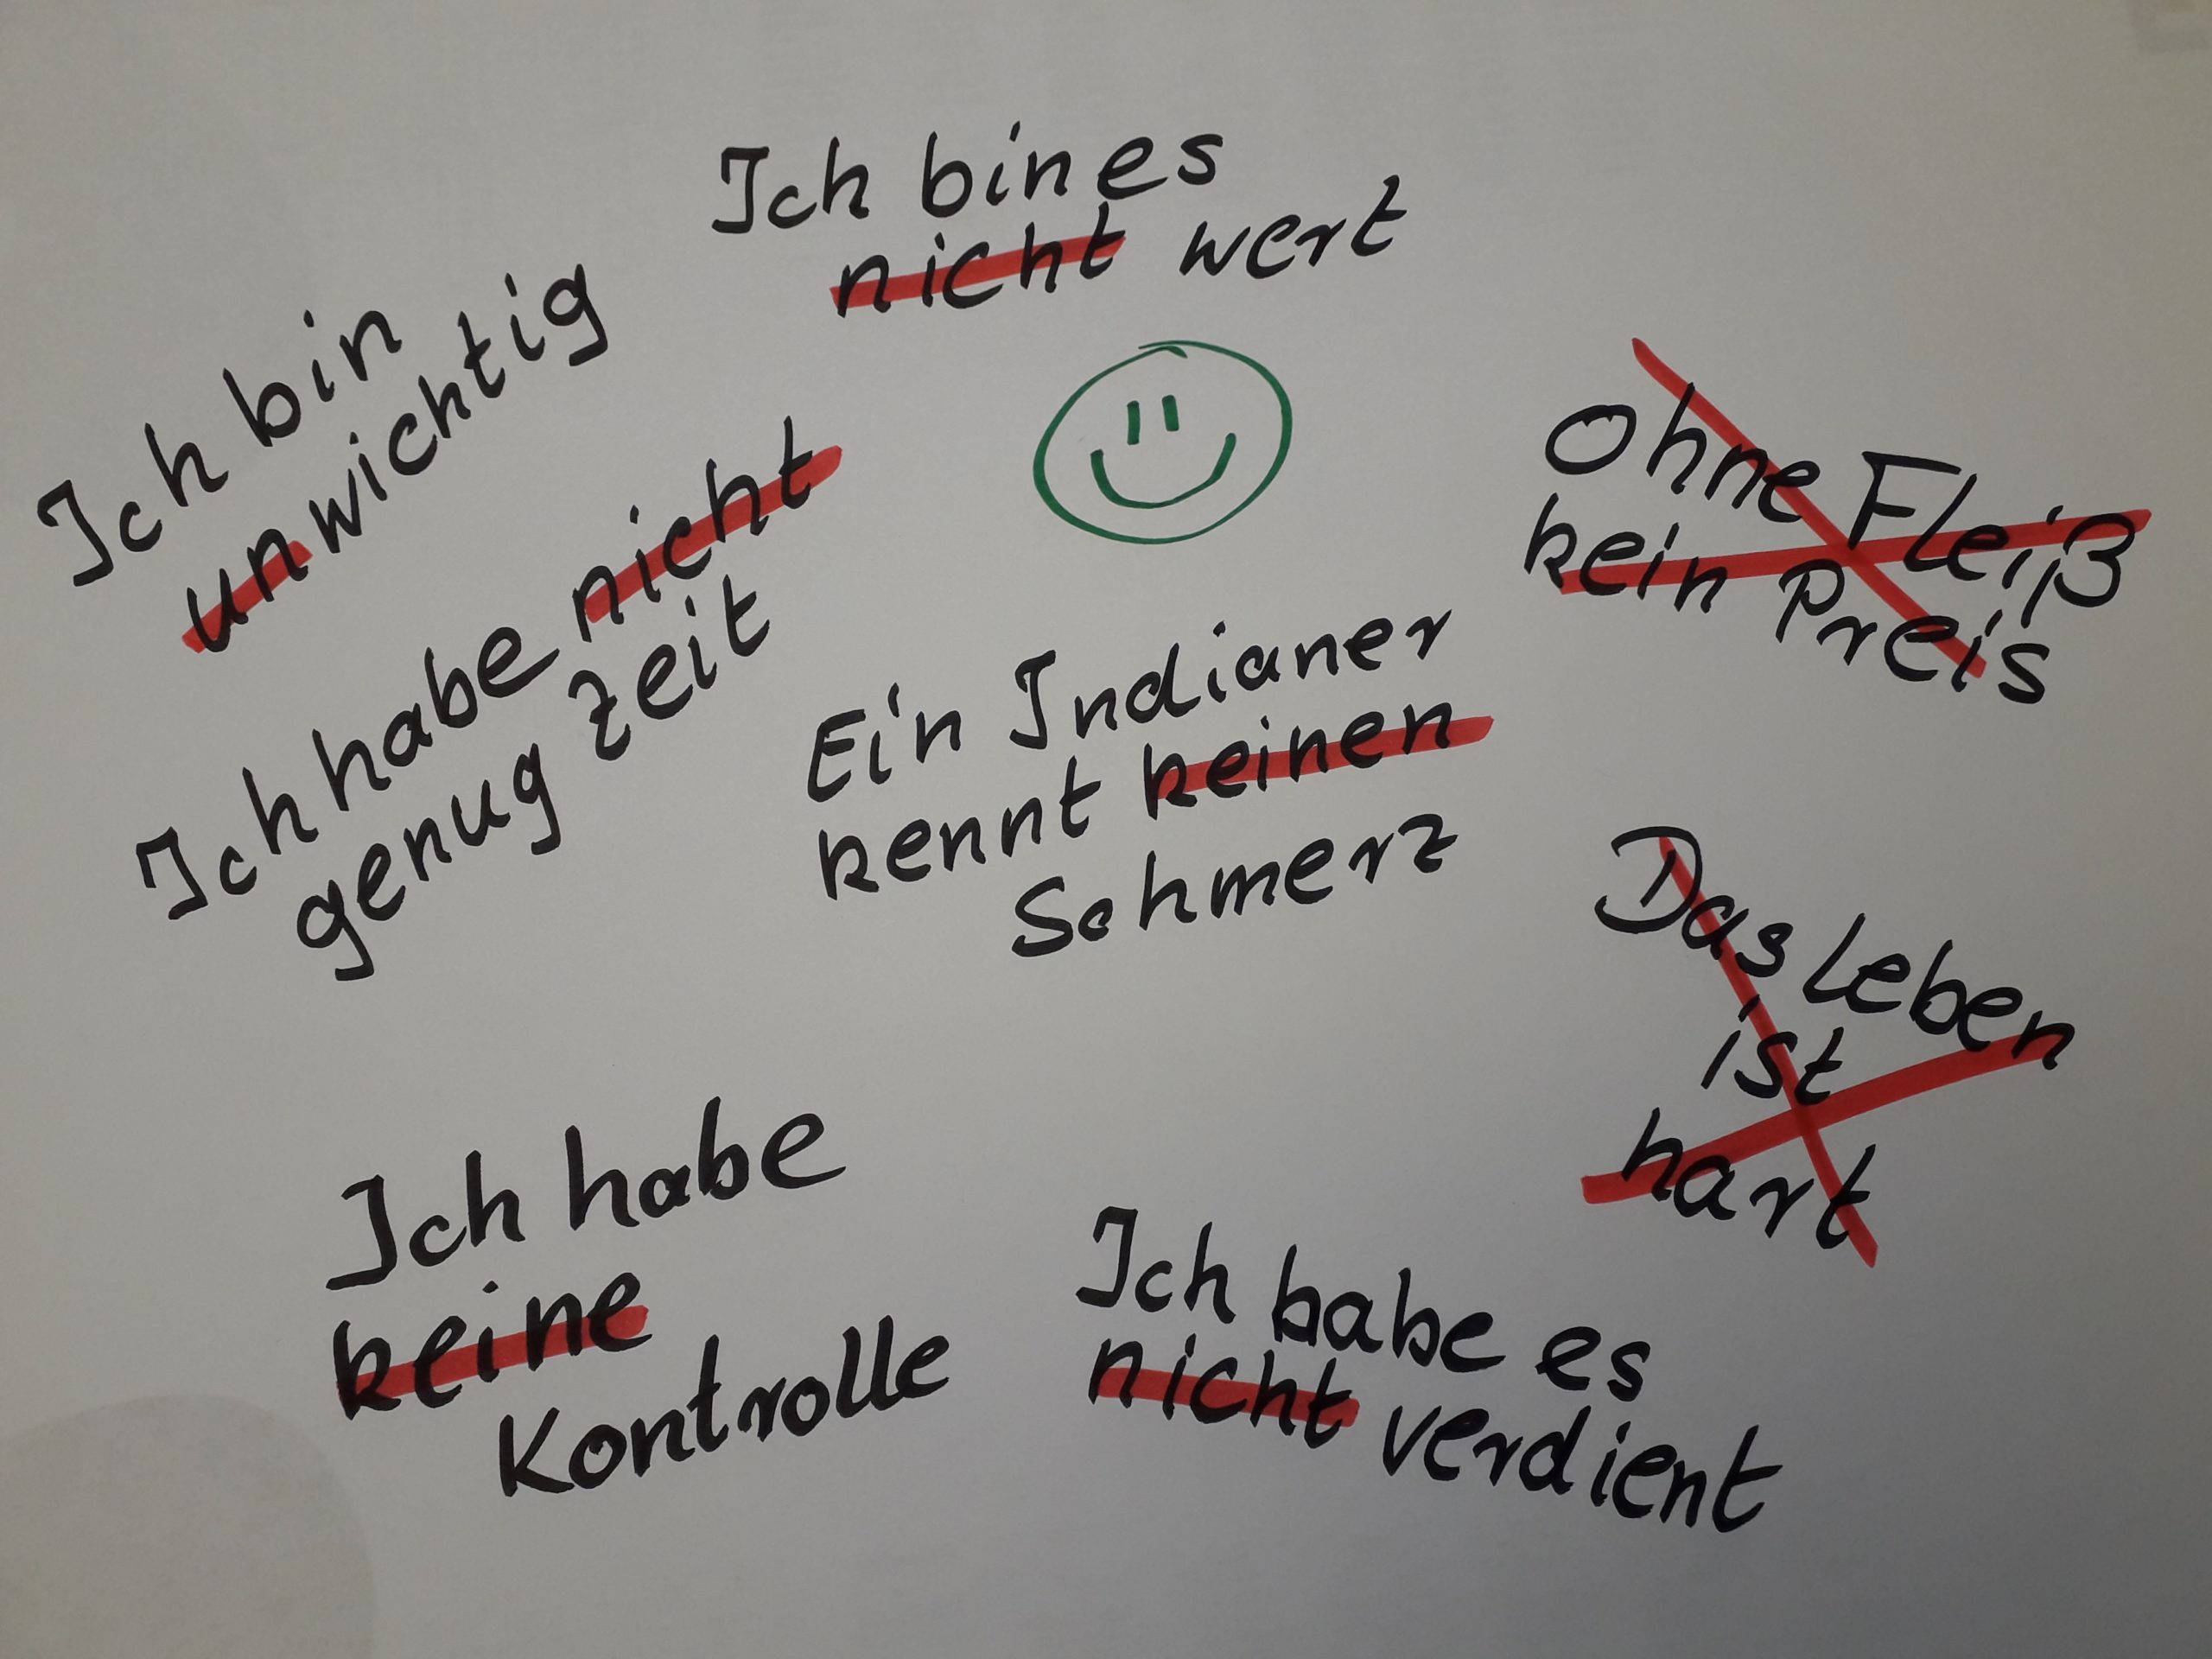 Ich bin es
nicht wert
Ich bin
unwichtig
Ich habe nicht
genug Zeit
Ohne Fleiß
kein Preis
Ein Indianer
kennt keinen
Schmerz
Das Leben
ist
hart
Ich habe
keine
Kontrolle
Ich habe es
nicht verdient